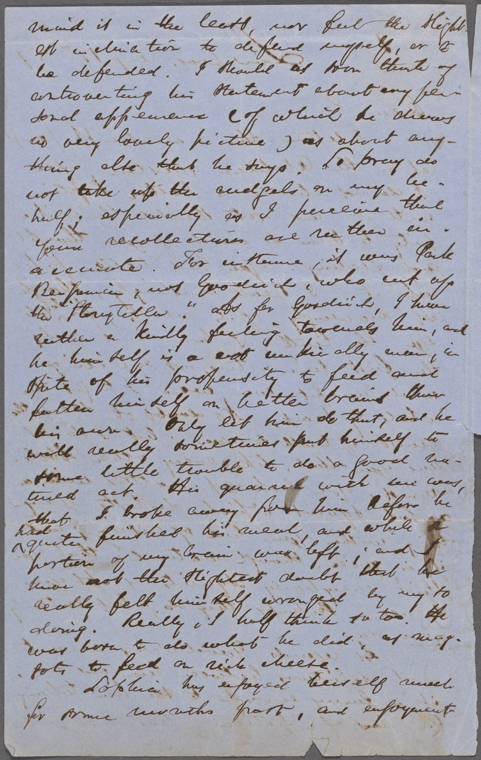 mind it in the least, nor feel the slight-
est inclination to defend myself, or to
be defended. I should as soon think of
controverting his statement about my per-
sonal appearance (of which he draws
no very lovely picture) as about any-
thing else that he says. So pray do
not take up the cudgels on my be-
half; especially as I perceive that
your recollections are rather in-
accurate. For instance, it was Park
Benjamin, not Goodrich, who cut up
the "Storyteller." As for Goodrich, I have
rather a kindly feeling towards him, and
he himself is a not unkindly man, in
spite of his propensity to feed and
fatten himself on better brains than
his own. Only let him do that, and he
will really sometimes put himself to
some little trouble to do a good na-
tured act. His quarrel with me was,
that I broke away from him before he
had quite finished his meal, and while a
portion of my brain was left; and I
have not the slightest doubt that he
really felt himself wronged by my so
doing. Really, I half think so too. He
was born to do what he did, as mag-
gots to feed on rich cheese.
Sophia has enjoyed herself much
for some months past, and enjoyment